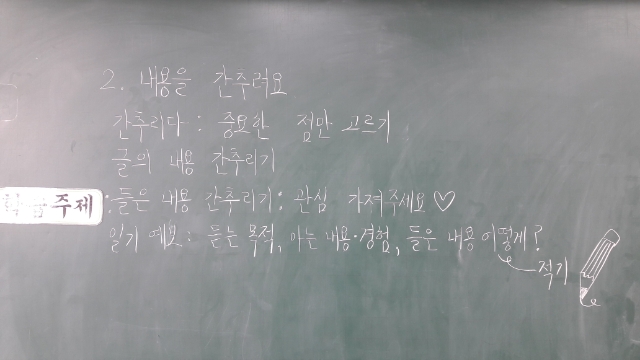 2. 내용을 간추려요
간추리다 : 중요한 점만 고르기
글의 내용 간추리기
학습주제
· 들은 내용 간추리기 : 관심 가져주세요♡
읽기 예꼬 : 듣는 목적, 아는 내용·경험, 들은 내용 어떻게?
적기